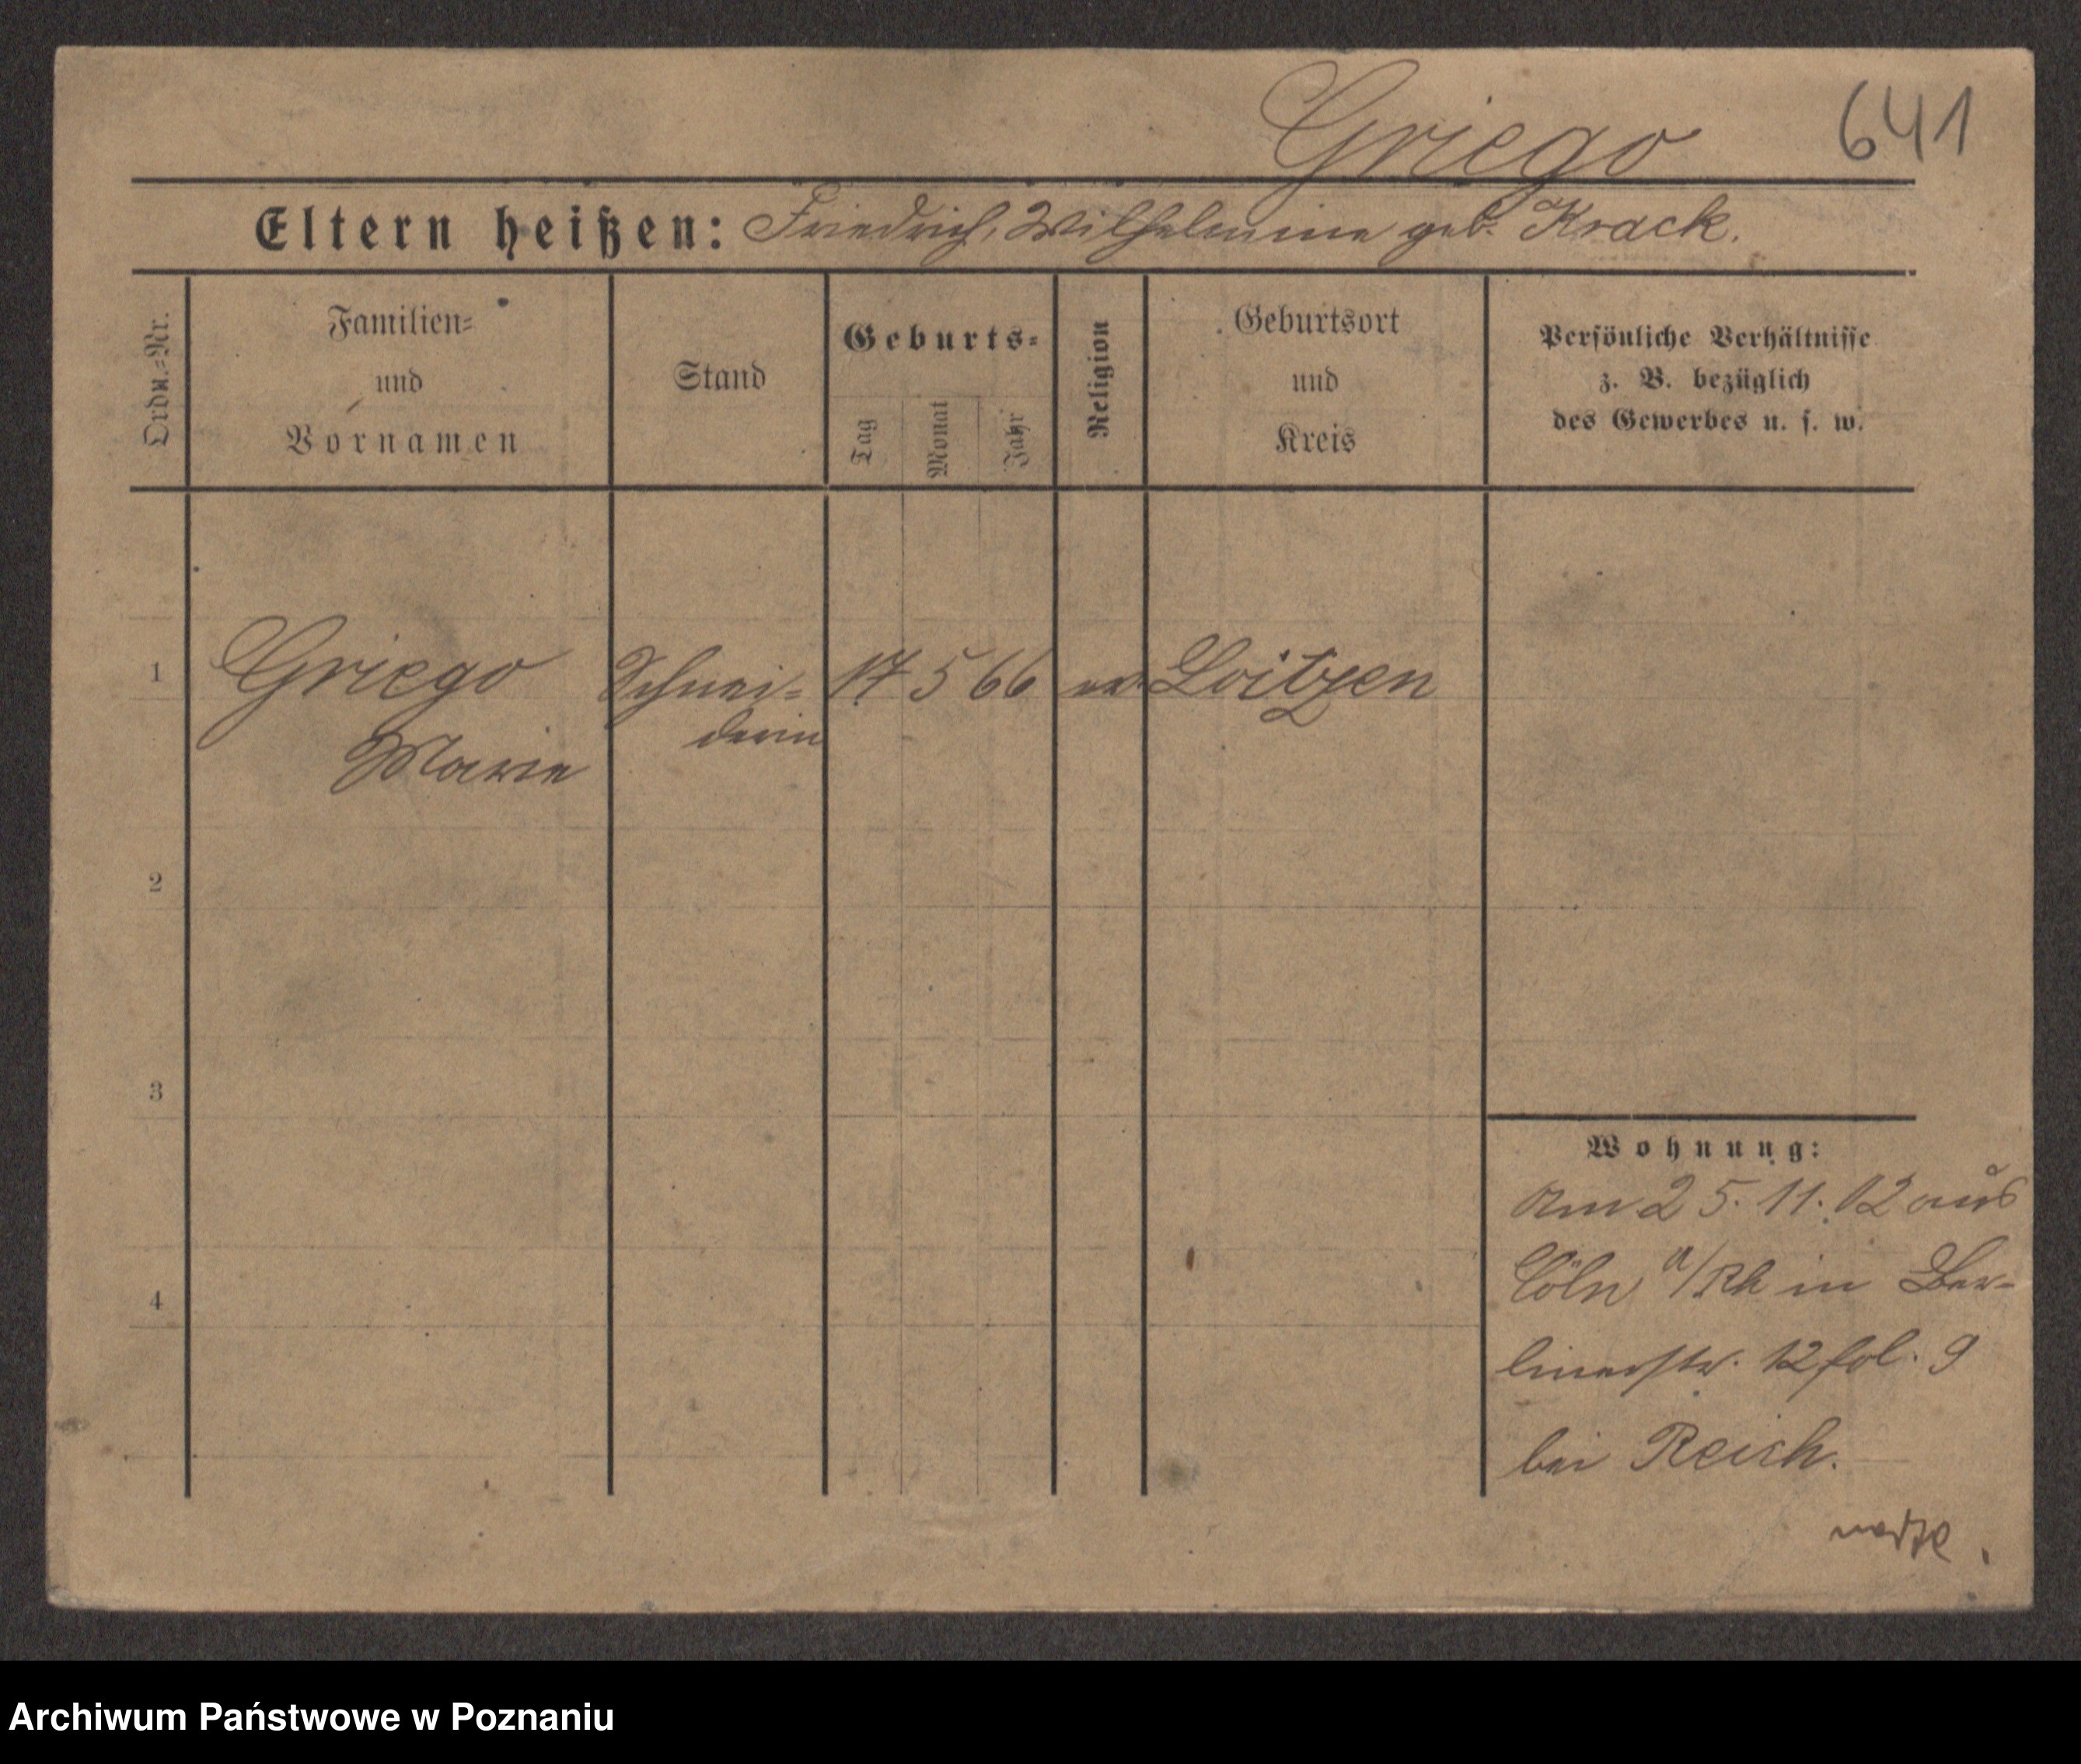 Griego
641
Eltern heißen: Friedrich, Wilhelmine geb. Krack.
Ordn.=Nr.
Familien=
und
Vornamen
Stand
Geburts=
Tag
Monat
Jahr
Religion
Geburtsort
und
Kreis
Persönliche Verhältnisse
z. B. bezüglich
des Gewerbes u. s. w.
1 Griego Schnei= 17 5 66 ev. Loitzen
Marie derin
2
3
4
Wohnung:
Am 25.11.02 aus
Cöln a/Rh in Ber=
linerstr. 12 fol. 9
bei Reich.
Archiwum Państwowe w Poznaniu